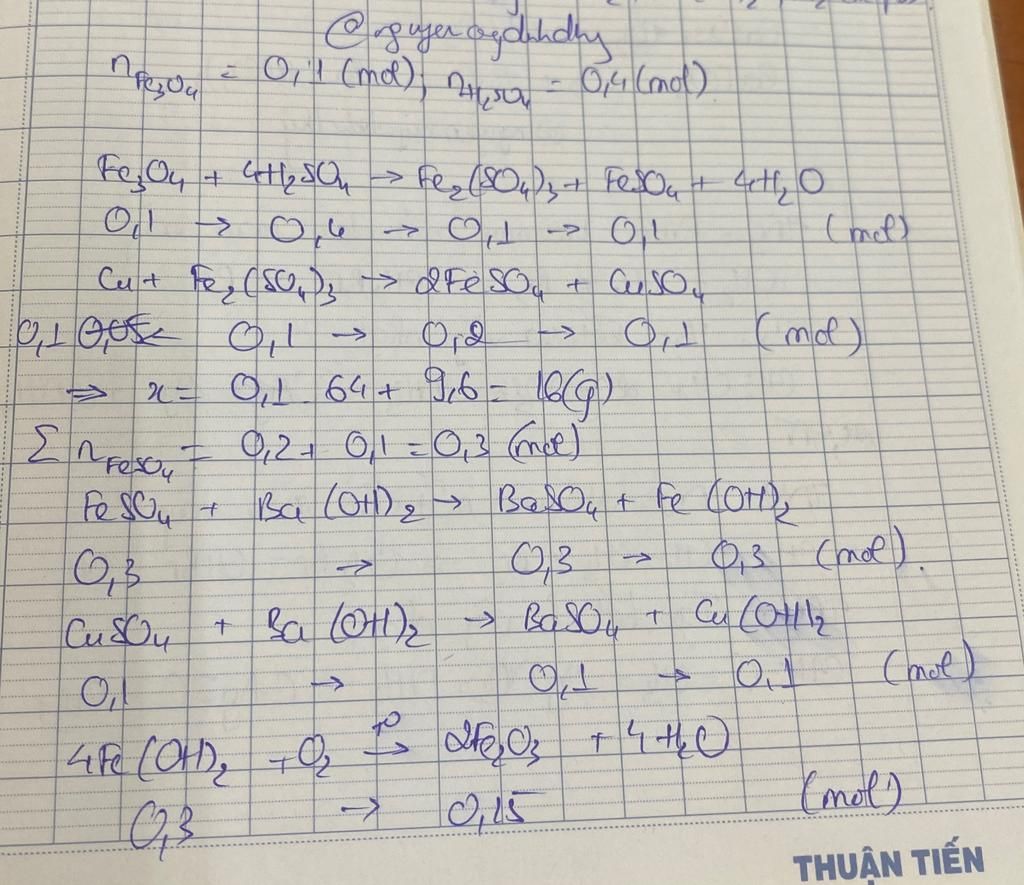 @nguyenngdhhdhy
nFe3O4 = 0,1 (mol); nH2SO4 = 0,4 (mol)
Fe3O4 + 4H2SO4 → Fe2(SO4)3 + FeSO4 + 4H2O
0,1 → 0,4 → 0,1 → 0,1 (mol)
Cu + Fe2(SO4)3 → 2FeSO4 + CuSO4
0,1 0,05 ← 0,1 → 0,2 → 0,1 (mol)
⇒ x = 0,1 . 64 + 9,6 = 16(g)
Σ nFeSO4 = 0,2 + 0,1 = 0,3 (mol)
FeSO4 + Ba(OH)2 → BaSO4 + Fe(OH)2
0,3 → 0,3 → 0,3 (mol).
CuSO4 + Ba(OH)2 → BaSO4 + Cu(OH)2
0,1 → 0,1 → 0,1 (mol)
4Fe(OH)2 + O2 t° → 2Fe2O3 + 4H2O
0,3 → 0,15 (mol)
THUẬN TIẾN